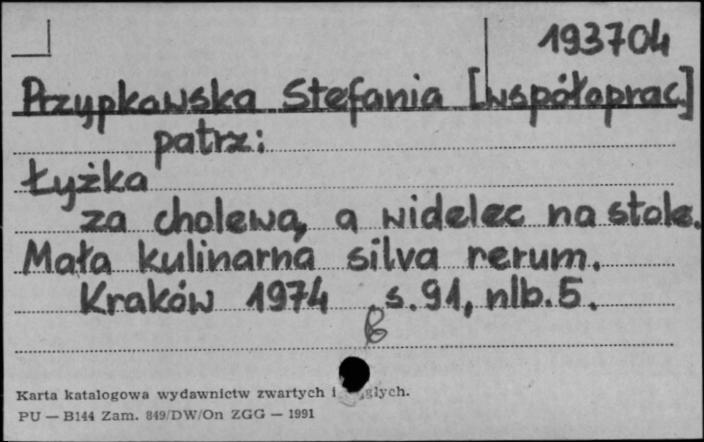 193704
Przypkowska Stefania [współoprac.]
patrz:
Łyżka
za cholewą, a widelec na stole.
Mała kulinarna silva rerum.
Kraków 1974 s. 91, nlb. 5.
B
Karta katalogowa wydawnictw zwartych i głych.
PU — B144 Zam. 849/DW/On ZGG — 1991